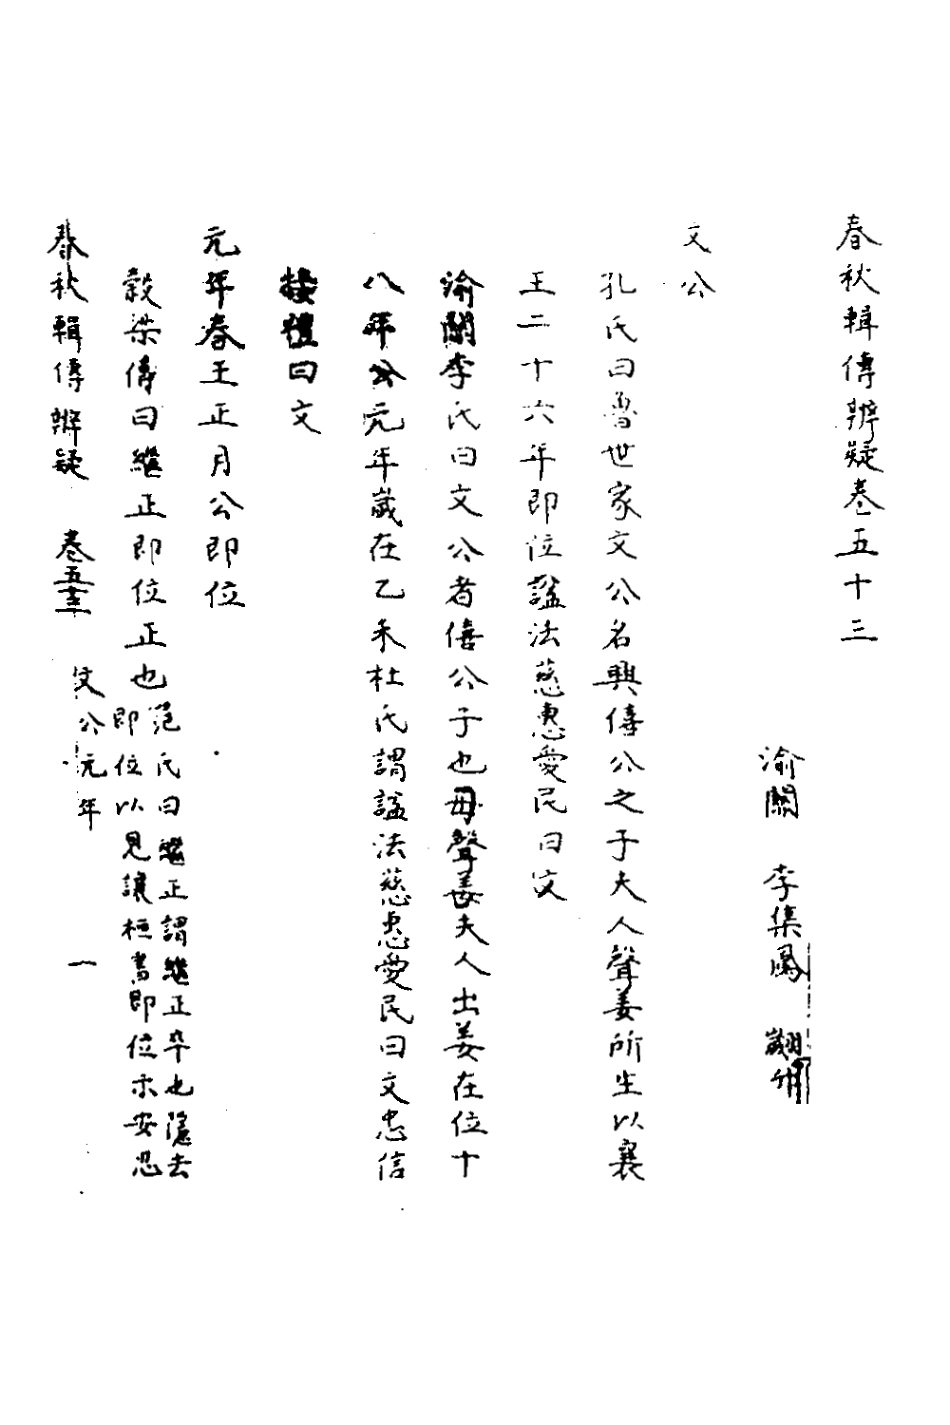 春秋輯傳辨疑卷五十三
渝關　李集鳳　翽升
文公
孔氏曰魯世家文公名興僖公之子夫人聲姜所生以襄
王二十六年即位諡法慈惠愛民曰文
渝關李氏曰文公者僖公子也母聲姜夫人出姜在位十
八年公元年歲在乙未杜氏謂諡法慈惠愛民曰文忠信
接禮曰文
元年春王正月公即位
穀梁傳曰繼正即位正也范氏曰繼正謂繼正卒也隱去
即位以見讓桓書即位示安忍
春秋輯傳辨疑　卷五十三　文公元年　一